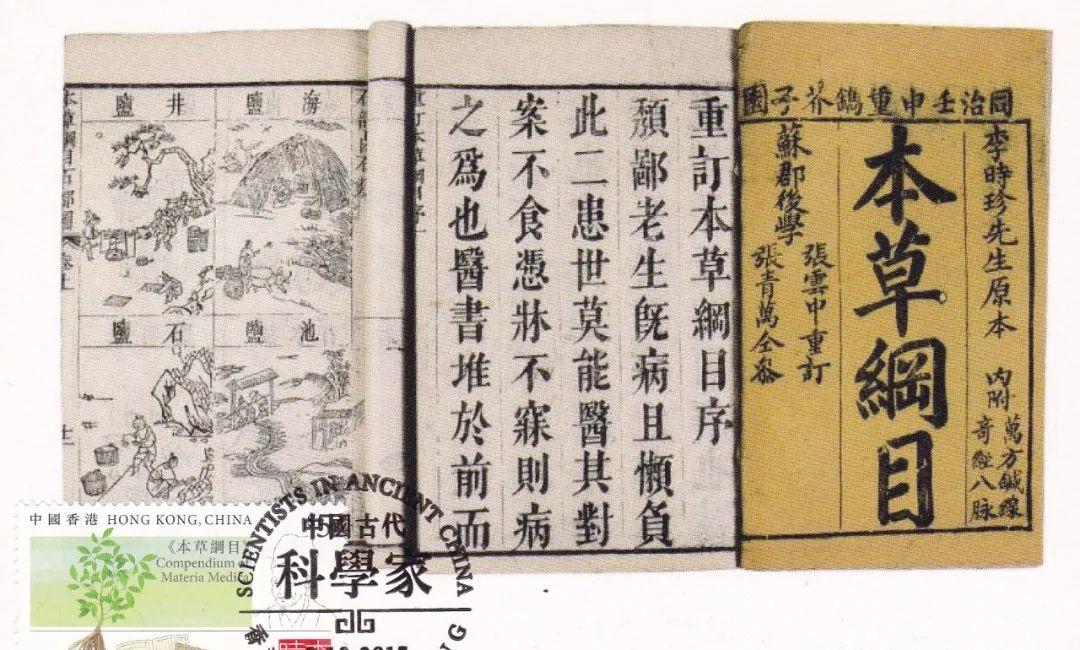 同治壬申重鐫芥子園
李時珍先生原本
內附
萬方鍼線
奇經八脉
本草綱目
蘇郡後學
張雲中重訂
張青萬仝參
重訂本草綱目序
頽鄙老生旣病且懶負
此二患世莫能醫其對
案不食憑牀不寐則病
之爲也醫書堆於前而
海鹽
井鹽
池鹽
石鹽
中國香港 HONG KONG, CHINA
《本草綱目》
Compendium
Materia Medica
SCIENTISTS IN ANCIENT CHINA
中國古代
科學家